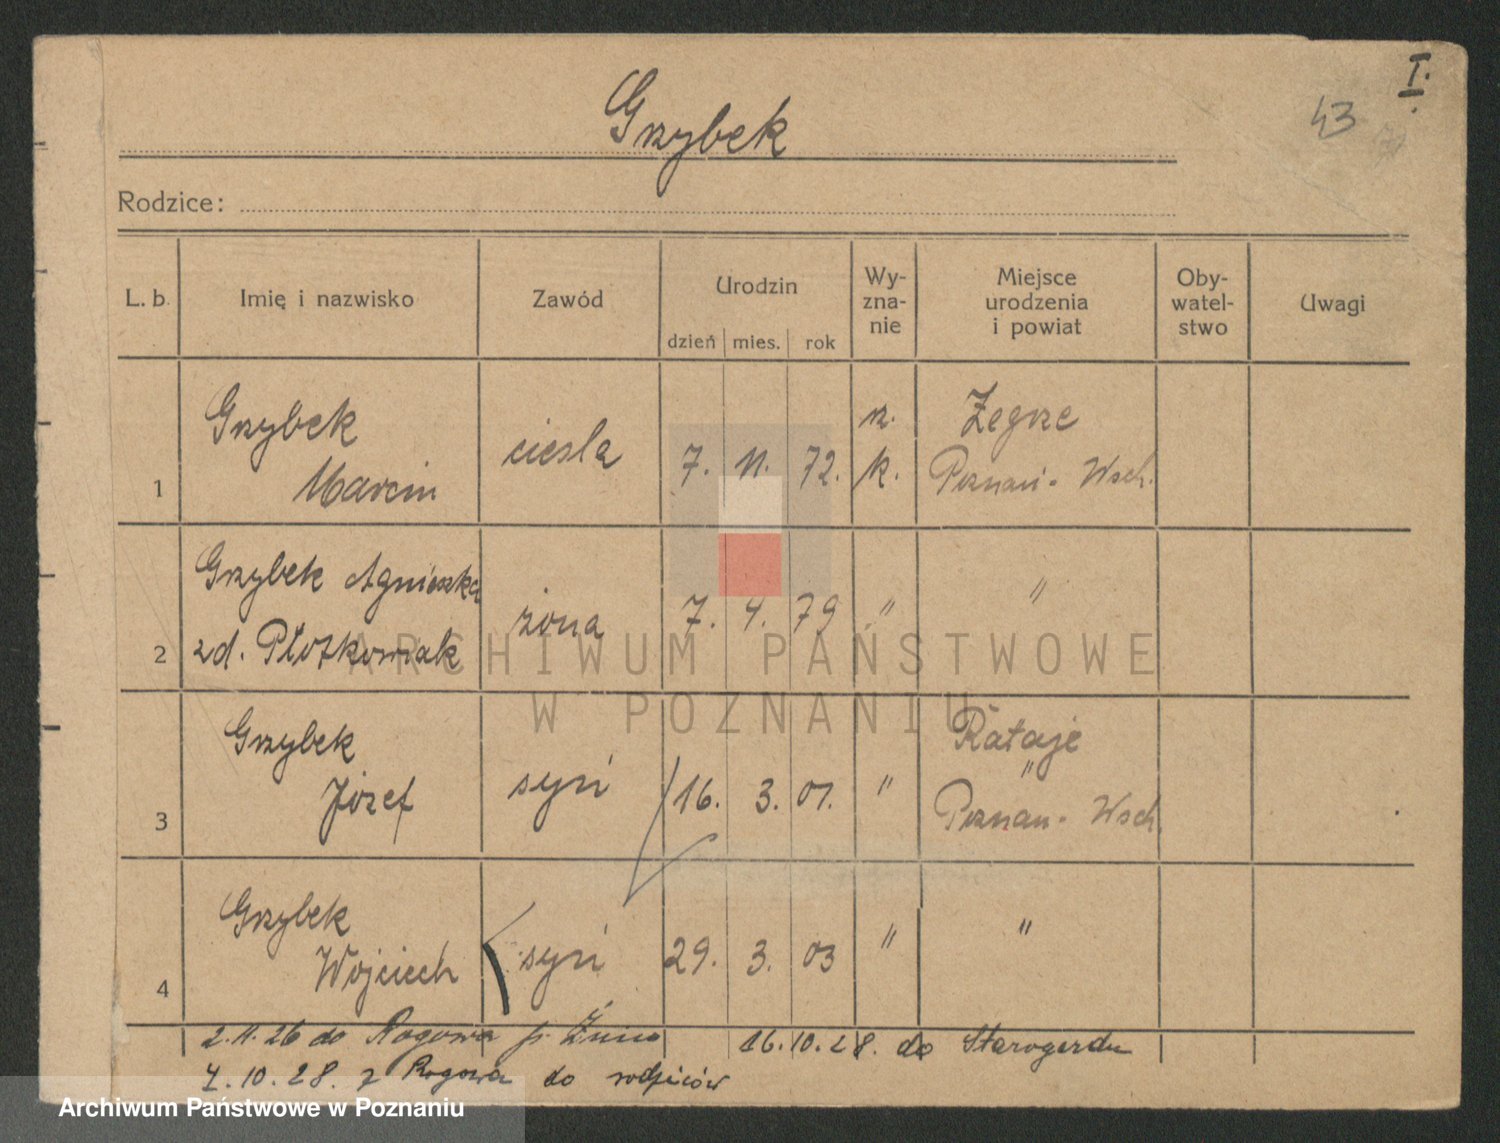 I.
43
Grzybek
Rodzice:
L. b. Imię i nazwisko Zawód Urodzin dzień mies. rok Wy-zna-nie Miejsce urodzenia i powiat Oby-watel-stwo Uwagi
Grzybek rz. Żegrze
1 Marcin ciesla 7. 11. 72. k. Poznań-Wsch.
Grzybek Agnieszka
2 zd. Płotkowiak żona 7. 4. 79 " "
Grzybek Rataje
3 Józef syn 16. 3. 01. " " Poznań-Wsch.
Grzybek
4 Wojciech syn 29. 3. 03 " "
2.11.26 do Rogowa p. Żnin 16.10.28. do Starogardu
4.10.28. z Rogowa do rodziców
ARCHIWUM PAŃSTWOWE
W POZNANIU
Archiwum Państwowe w Poznaniu